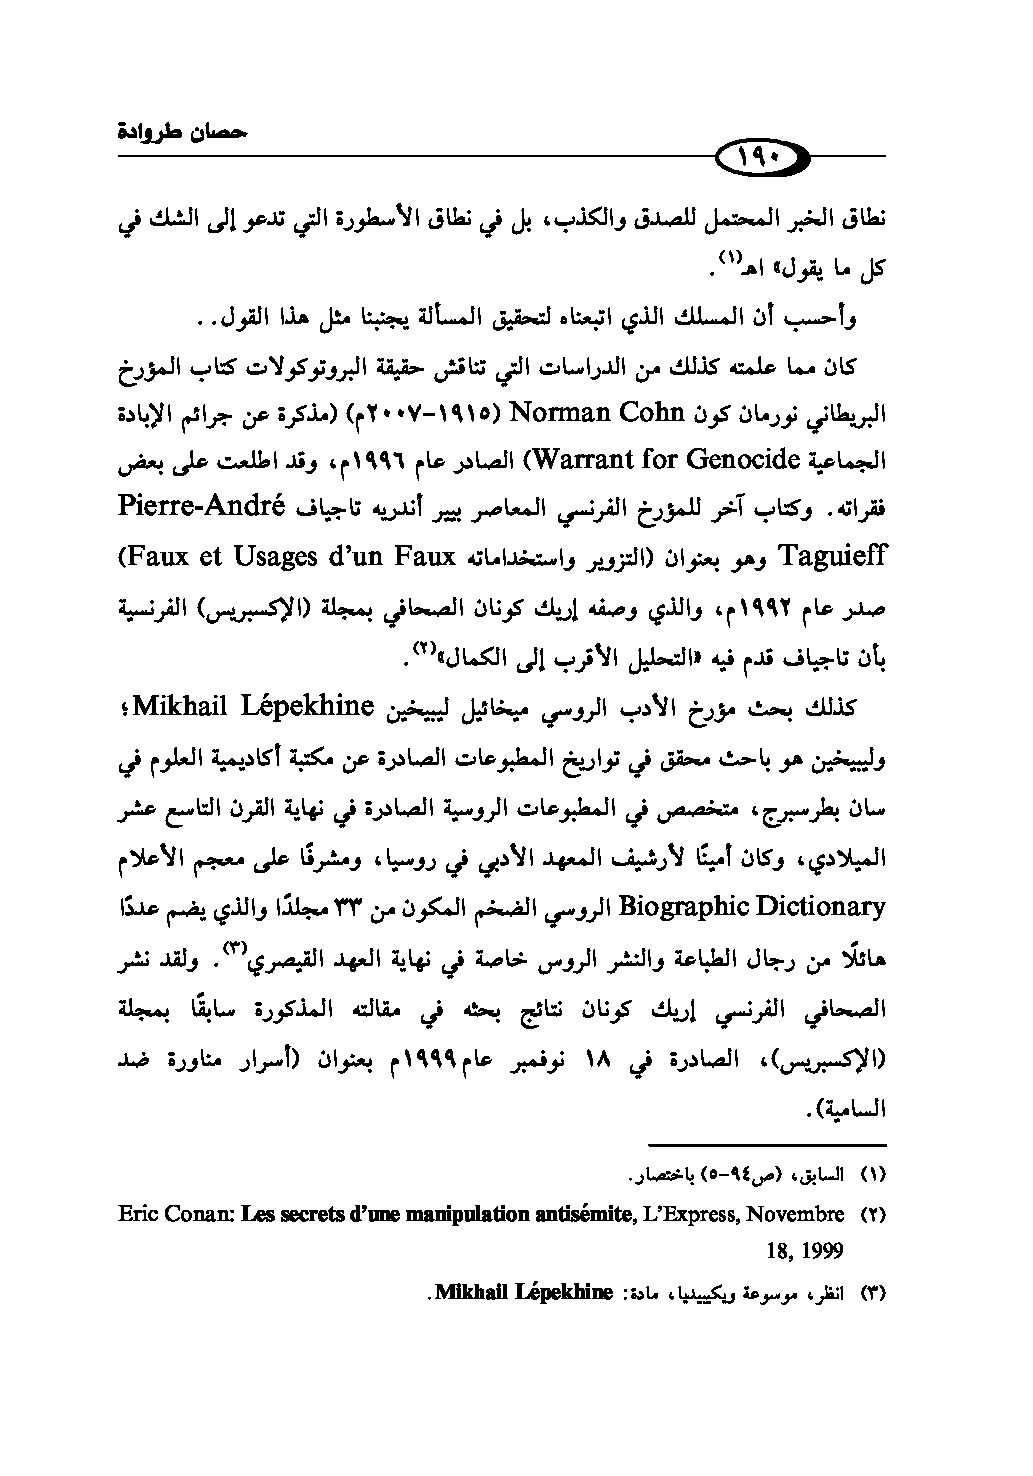 حصان طروادة
١٩٠
نطاق الخبر المحتمل للصدق والكذب، بل في نطاق الأسطورة التي تدعو إلى الشك في
كل ما يقول» اهـ(١).
وأحسب أن المسلك الذي اتبعناه لتحقيق المسألة يجنبنا مثل هذا القول. .
كان مما علمته كذلك من الدراسات التي تناقش حقيقة البروتوكولات كتاب المؤرخ
البريطاني نورمان كون Norman Cohn (١٩١٥-٢٠٠٧م) (مذكرة عن جرائم الإبادة
الجماعية Warrant for Genocide) الصادر عام ١٩٩٦م، وقد اطلعت على بعض
فقراته. وكتاب آخر للمؤرخ الفرنسي المعاصر بيير أندريه تاجياف Pierre-André
Taguieff وهو بعنوان (التزوير واستخداماته Faux et Usages d’un Faux)
صدر عام ١٩٩٢م، والذي وصفه إريك كونان الصحافي بمجلة (الإكسبريس) الفرنسية
بأن تاجياف قدم فيه «التحليل الأقرب إلى الكمال»(٢).
كذلك بحث مؤرخ الأدب الروسي ميخائيل ليبيخين Mikhail Lépekhine؛
وليبيخين هو باحث محقق في تواريخ المطبوعات الصادرة عن مكتبة أكاديمية العلوم في
سان بطرسبرج، متخصص في المطبوعات الروسية الصادرة في نهاية القرن التاسع عشر
الميلادي، وكان أمينًا لأرشيف المعهد الأدبي في روسيا، ومشرفًا على معجم الأعلام
Biographic Dictionary الروسي الضخم المكون من ٣٣ مجلدًا والذي يضم عددًا
هائلًا من رجال الطباعة والنشر الروس خاصة في نهاية العهد القيصري(٣). ولقد نشر
الصحافي الفرنسي إريك كونان نتائج بحثه في مقالته المذكورة سابقًا بمجلة
(الإكسبريس)، الصادرة في ١٨ نوفمبر عام١٩٩٩م بعنوان (أسرار مناورة ضد
السامية).
(١) السابق، (ص٩٤-٥) باختصار.
(٢) Eric Conan: Les secrets d’une manipulation antisémite, L’Express, Novembre
18, 1999
(٣) انظر، موسوعة ويكيبيديا، مادة: Mikhail Lépekhine.